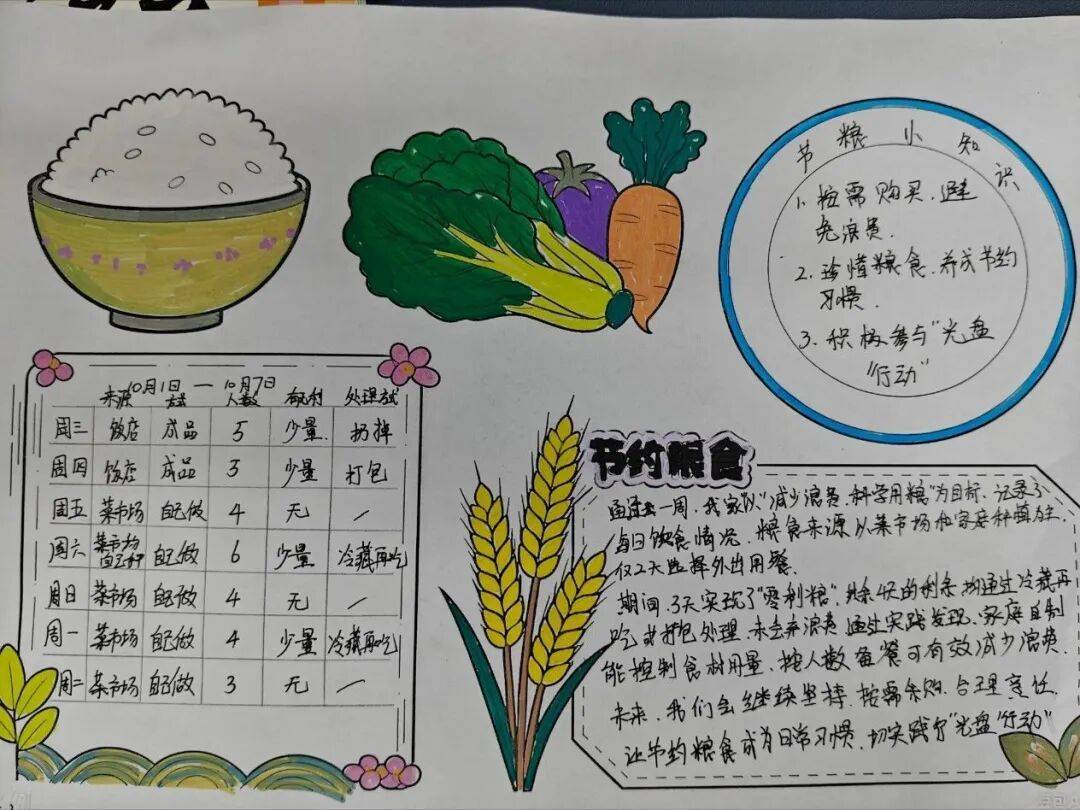 节粮小知识
1. 按需购买,避
免浪费.
2. 珍惜粮食.养成节约
习惯.
3. 积极参与"光盘
"行动"
10月1日 — 10月7日
来源 方式 人数 有无剩 处理方式
周三 饭店 成品 5 少量 扔掉
周四 饭店 成品 3 少量 打包
周五 菜市场 自己做 4 无 /
周六 菜市场 自己种 自己做 6 少量 冷藏再吃
周日 菜市场 自己做 4 无 /
周一 菜市场 自己做 4 少量 冷藏再吃
周二 菜市场 自己做 3 无 /
节约粮食
通过去一周,我家以"减少浪费,科学用粮"为目标,记录了
每日饮食情况。粮食来源以菜市场和家庭种植为主,
仅2天选择外出用餐.
期间,3天实现了"零剩粮",其余4天的剩余均通过冷藏再
吃或打包处理,未丢弃浪费.通过实践发现,家庭自制
能控制食材用量,按人数备餐可有效减少浪费.
未来,我们会继续坚持,按需采购,合理烹饪,
让节约粮食成为日常习惯,切实践行"光盘行动"